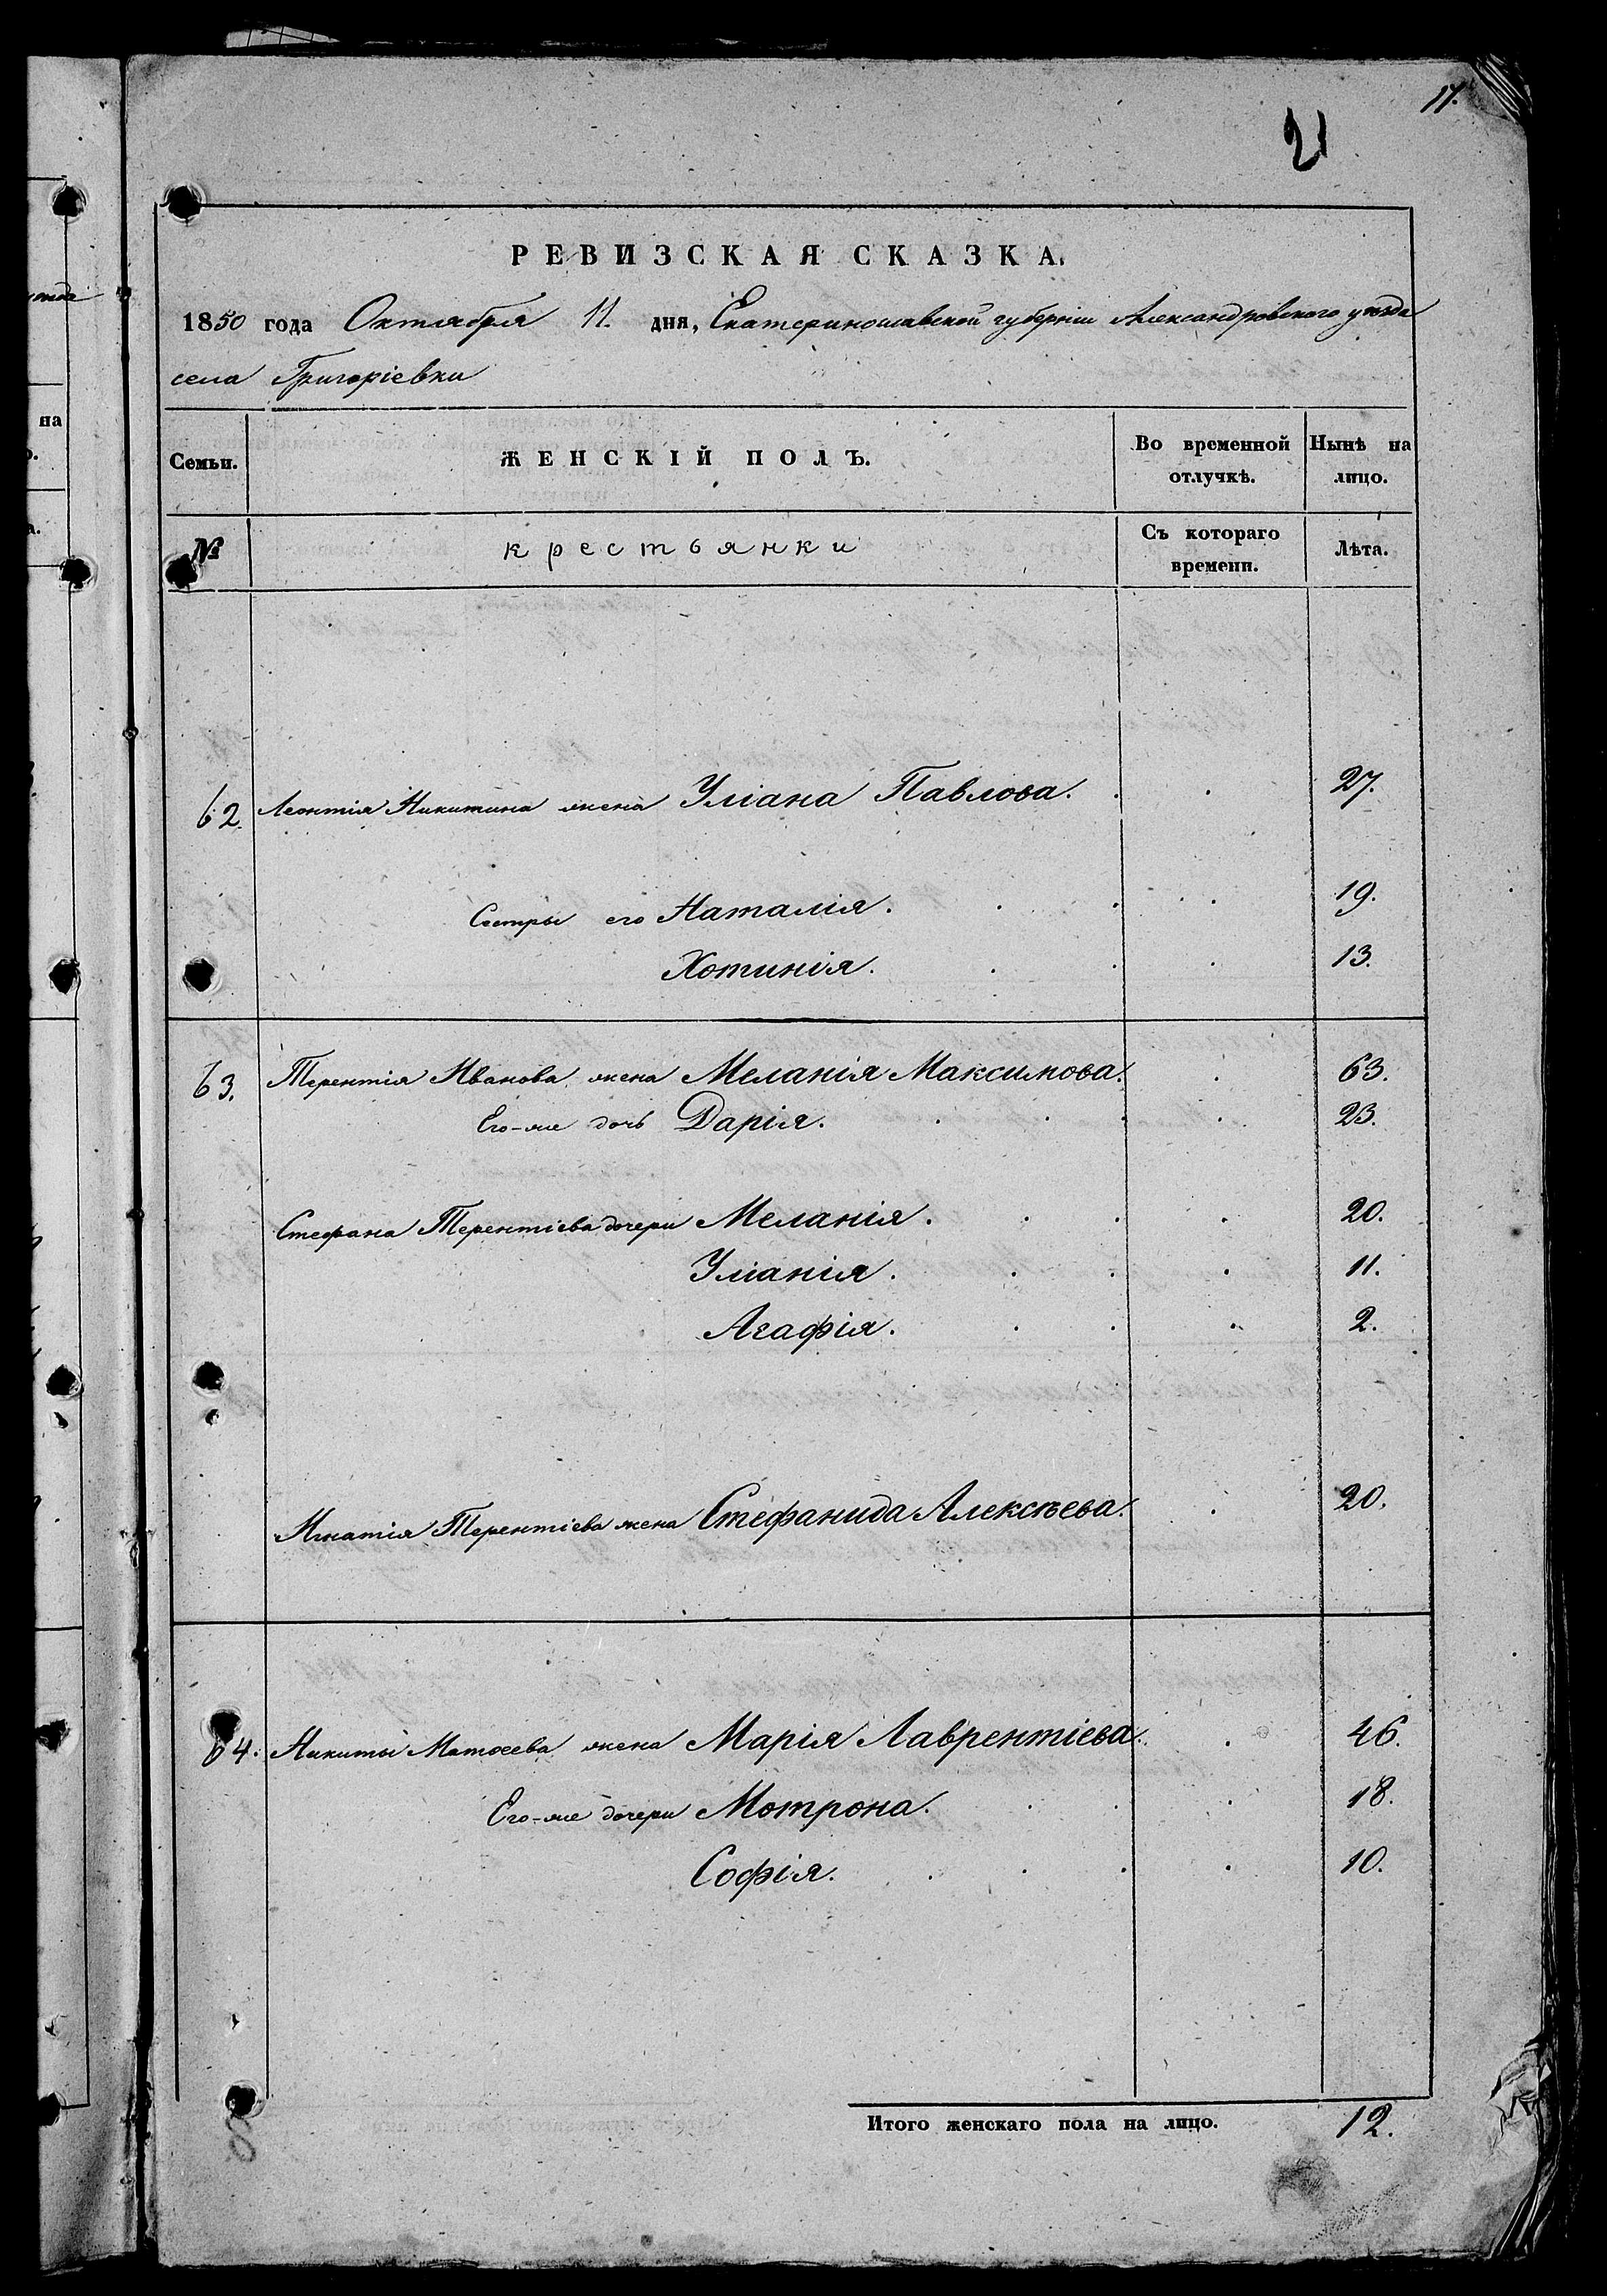 17.
21
РЕВИЗСКАЯ СКАЗКА.
1850 года Октября 11. дня, Екатеринославской губерніи Александровского уѣзда
села Григоріевки
Семьи. ЖЕНСКІЙ ПОЛЪ. Во временной отлучкѣ. Нынѣ на лицо.
№ крестьянки Съ котораго времени. Лѣта.
62. Леонтія Никитина жена Уліана Павлова. 27.
Сестры его Наталія. 19.
Хотинія. 13.
63. Терентія Иванова жена Меланія Максимова. 63.
Его-же дочь Дарія. 23.
Стефана Терентіева дочери Меланія. 20.
Уліанія. 11.
Агафія. 2.
Игнатія Терентіева жена Стефанида Алексѣева. 20.
64. Никиты Матвеева жена Марія Лаврентіева. 46.
Его-же дочери Мотрона. 18.
Софія. 10.
Итого женскаго пола на лицо. 12.